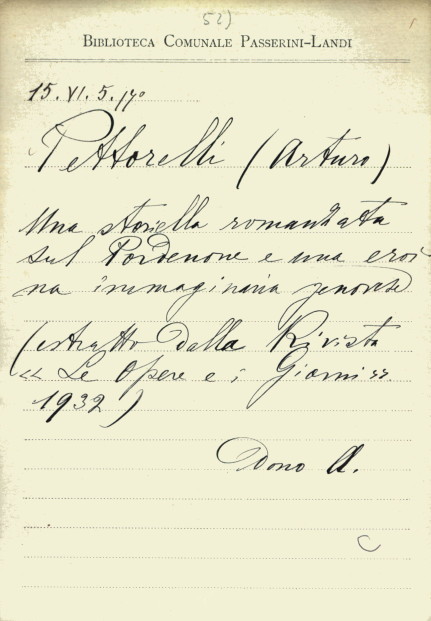 52)
BIBLIOTECA COMUNALE PASSERINI-LANDI
15. VI. 5. 17º
Pettorelli (Arturo)
Una storiella romanzata
sul Pordenone e una eroi
na immaginaria genovese
(estratto dalla Rivista
« Le Opere e i Giorni »
1932)
Dono A.
C